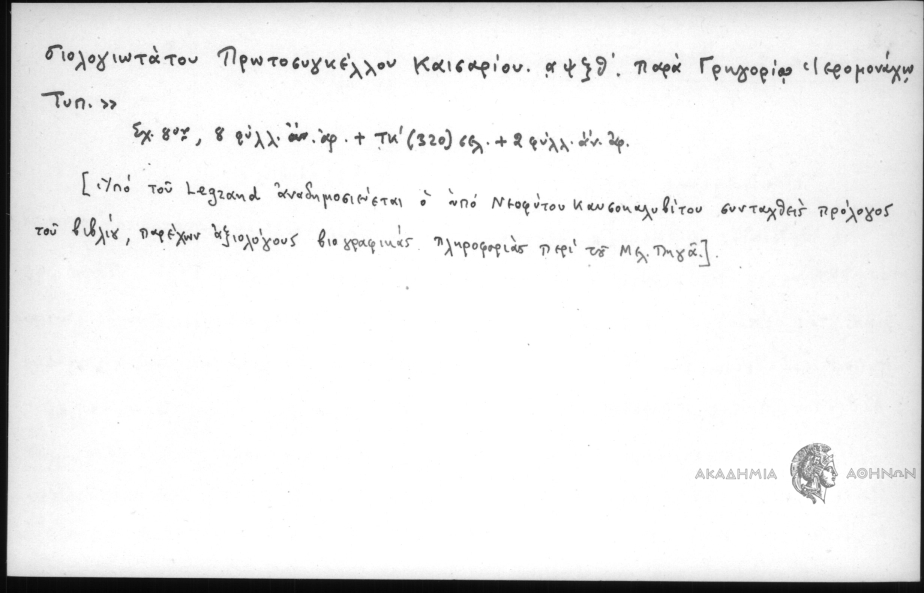 σιολογιωτάτου Πρωτοσυγκέλλου Καισαρίου. αψξθ΄. παρὰ Γρηγορίῳ Ἱερομονάχῳ
Τυπ.»
Σχ. 8ον, 8 φύλλ. ἄν. ἀρ. + τκ΄ (320) σελ. + 2 φύλλ. ἄν. ἀρ.
[Ὑπό τοῦ Legrand ἀναδημοσιεύεται ὁ ὑπό Νεοφύτου Καυσοκαλυβίτου συνταχθείς πρόλογος
τοῦ βιβλίου, παρέχων ἀξιολόγους βιογραφικάς πληροφορίας περί τοῦ Μελ. Πηγᾶ.].
ΑΚΑΔΗΜΙΑ ΑΘΗΝΩΝ